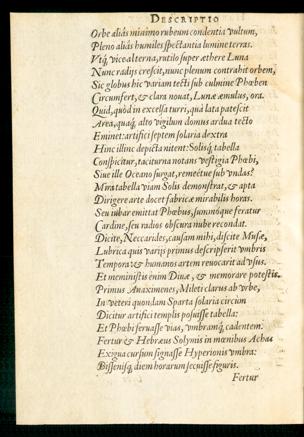 DESCRIPTIO
Orbe aliâs minimo rubeum condentia vultum,
Pleno aliâs humiles spectantia lumine terras.
Vtq́; vice alterna, rutilo super æthere Luna
Nunc radijs crescit, nunc plenum contrahit orbem,
Sic globus hic variam tecti sub culmine Phœben
Circumfert, & clara nouat, Lunæ æmulus, ora.
Quid, quòd in excelsa turri, quâ lata patescit
Area, quaq́; alto vigilum domus ardua tecto
Eminet: artifici septem solaria dextra
Hinc illinc depicta nitent: Solisq́; tabella
Conspicitur, taciturna notans vestigia Phœbi,
Siue ille Oceano surgat, remeétue sub vndas?
Mira tabella viam Solis demonstrat, & apta
Dirigere arte docet fabricæ mirabilis horas.
Seu iubar emittat Phœbus, summoque feratur
Cardine, seu radios obscura nube recondat.
Dicite, Mæcarides, causam mihi, discite Musæ,
Lubrica quis varijs primus descripserit vmbris
Tempora: & humanos artem reuocarit ad vsus.
Et meministis enim Diuæ, & memorare potestis.
Primus Anaximenes, Mileti clarus ab vrbe,
In veteri quondam Sparta solaria circùm
Dicitur artifici templis posuisse tabella:
Et Phœbi seruasse vias, vmbramq́; cadentem.
Fertur & Hebræus Solymis in mœnibus Achas
Exigua cursum signasse Hyperionis vmbra:
Bissenisq́; diem horarum secuisse figuris.
Fertur